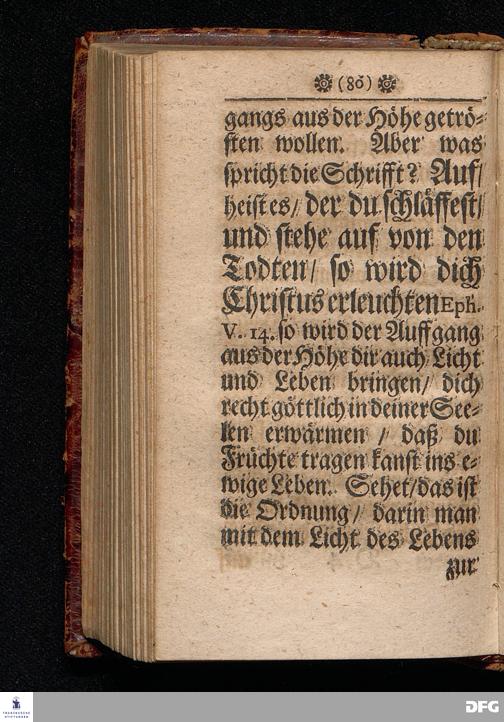 (86)
gangs aus der Höhe getrö⸗
sten wollen. Aber was
spricht die Schrifft? Auf/
heist es/ der du schläffest/
und stehe auf von den
Todten/ so wird dich
Christus erleuchten Eph.
V. 14. so wird der Auffgang
aus der Höhe dir auch Licht
und Leben bringen/ dich
recht göttlich in deiner See⸗
len erwärmen / daß du
Früchte tragen kanst ins e⸗
wige Leben. Sehet/ das ist
die Ordnung/ darin man
mit dem Licht des Lebens
zur
FRANCKESCHE
STIFTUNGEN
DFG